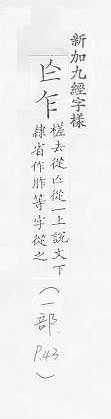 新加九經字樣
乍
槎去從亾從一上說文下
隸省作胙等字從之
（一部 P.43）